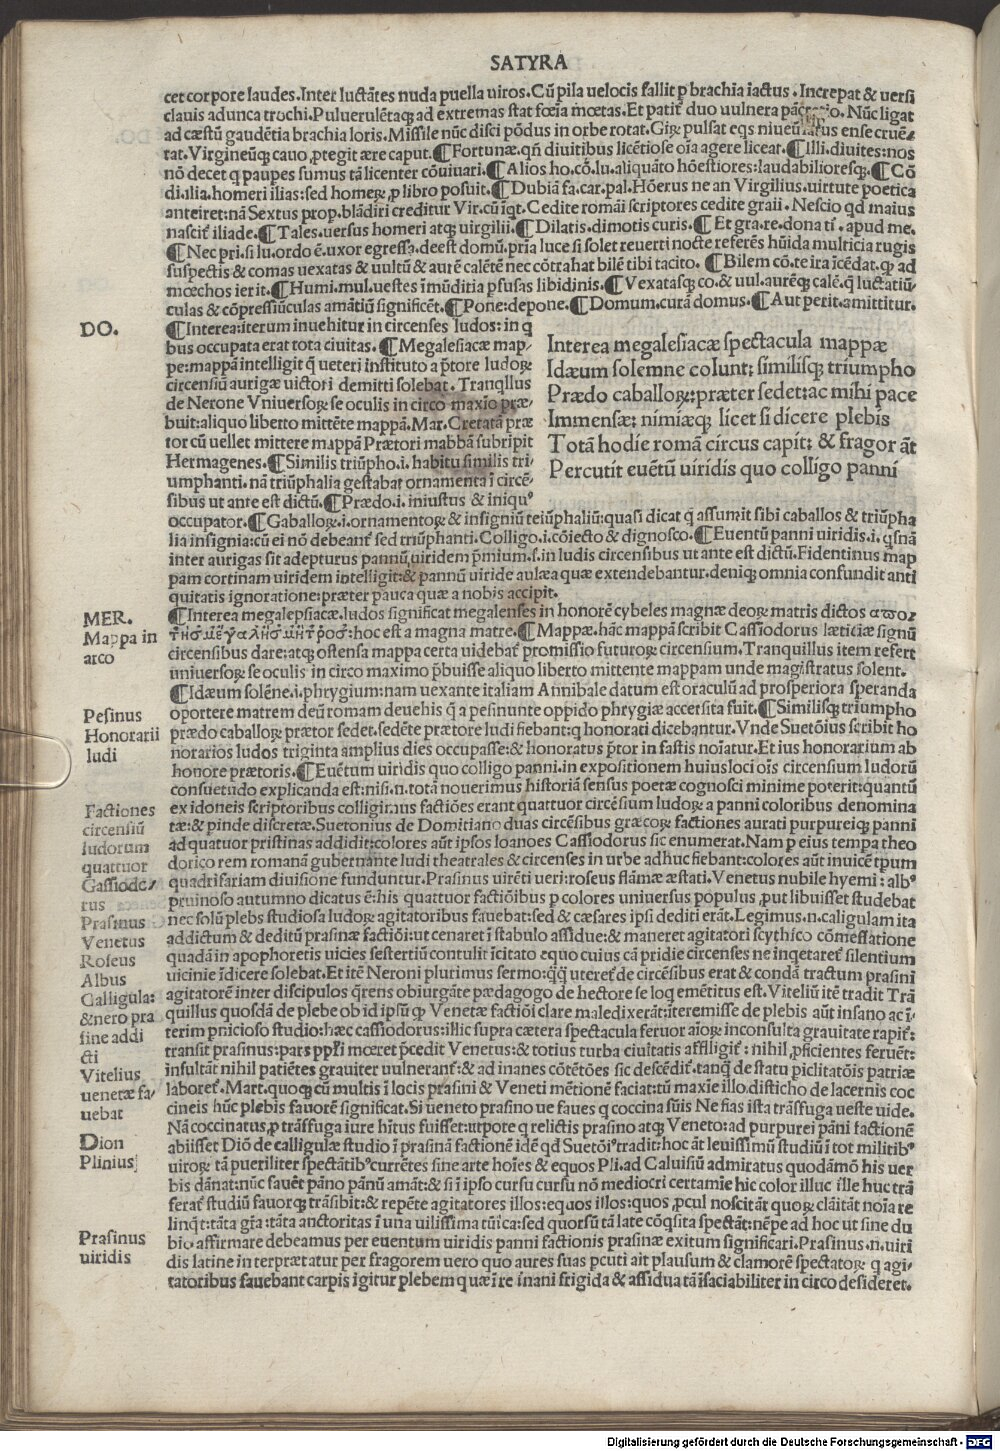 SATYRA
cet corpore laudes. Inter luctātes nuda puella uiros. Cū pila uelocis fallit p brachia iactus. Increpat & uersi
clauis adunca trochi. Puluerulētaqȝ ad extremas stat fœia mœtas. Et patit̄ duo uulnera Nūc ligat
ad cæstū gaudētia brachia loris. Missile nūc disci pōdus in orbe rotat. Giꝝ pulsat eqs niueū ense cruē-
tat. Virgineūqȝ cauo ꝓtegit ære caput. ¶Fortunæ. qñ diuitibus licētiose oīa agere liceat. ¶Illi. diuites: nos
nō decet q paupes sumus tā licenter cōuiuari. ¶Alios ho. cō. lu. aliquāto hōestiores: laudabilioresqȝ. ¶Cō
di. ilia. homeri ilias: sed homeꝝ ꝓ libro posuit. ¶Dubiā fa. car. pal. Hōerus ne an Virgilius. uirtute poetica
anteiret: nā Sextus prop. blādiri creditur Vir. cū īqt. Cedite romāi scriptores cedite graii. Nescio qd maius
nascit̄ iliade. ¶Tales. uersus homeri atqȝ uirgilii. ¶Dilatis. dimotis curis. ¶Et gra. re. dona ti. apud me.
¶Nec pri. si lu. ordo ē. uxor egressa. deest domū. prīa luce si solet reuerti nocte referēs hūida multicia rugis
suspectis & comas uexatas & uultū & aurē calētē nec cōtrahat bilē tibi tacito. ¶Bilem cō. te ira īcēdat. qȝ ad
mœchos ierit. ¶Humi. mul. uestes īmūditia pfusas libidinis. ¶Vexatasqȝ co. & uul. aurēqȝ calē. q̄ luctatiū-
culas & cōpressiūculas amātiū significēt. ¶Pone: depone. ¶Domum. curā domus. ¶Aut perit. amittitur.
DO.
¶Interea: iterum inuehitur in circenses ludos: in q
bus occupata erat tota ciuitas. ¶Megalesiacæ map-
pe: mappā intelligit q̄ ueteri instituto a p̄tore ludoꝝ
circensiū aurigæ uictori demitti solebat. Tranqllus
de Nerone Vniuersoꝝ se oculis in circo maxīo præ-
buit: aliquo liberto mittēte mappā. Mar. Cretatā præ
tor cū uellet mittere mappā Prætori mabbā subripit
Hermagenes. ¶Similis triūpho. i. habitu similis tri-
umphanti. nā triūphalia gestabat ornamenta ī circē-
sibus ut ante est dictū. ¶Prædo. i. iniustus & iniqu⁹
Interea megalesiacæ spectacula mappæ
Idæum solemne colunt; similisqȝ triumpho
Prædo caballoꝝ; præter sedet: ac mihi pace
Immensæ; nimiæqȝ licet si dicere plebis
Totā hodie romā circus capit; & fragor āt
Percutit euētū uiridis quo colligo panni
occupator. ¶Gaballoꝝ. i. ornamentoꝝ & insigniū teiūphaliū: quasi dicat q assumit sibi caballos & triūpha
lia insignia: cū ei nō debeant̄ sed triūphanti. Colligo. i. cōiecto & dignosco. ¶Euentū panni uiridis. i. qsnā
inter aurigas sit adepturus pannū uiridem p̄mium. s. in ludis circensibus ut ante est dictū. Fidentinus map
pam cortinam uiridem intelligit: & pannū uiride aulæa quæ extendebantur. deniqȝ omnia confundit anti
quitatis ignoratione: præter pauca quæ a nobis accipit.
MER.
Mappa in
arco
¶Interea megalepsiacæ. ludos significat megalenses in honorē cybeles magnæ deoꝝ matris dictos απο
τῆς μεγάλης μητρός: hoc est a magna matre. ¶Mappæ. hāc mappā scribit Cassiodorus lætitiæ signū
circensibus dare: atqȝ ostensa mappa certa uidebat̄ promissio futuroꝝ circensium. Tranquillus item refert
uniuersoꝝ se oculis in circo maximo p̄buisse aliquo liberto mittente mappam unde magistratus solent.
¶Idæum solēne. i. phrygium: nam uexante italiam Annibale datum est oraculū ad prosperiora speranda
oportere matrem deū romam deuehis q̄ a pesinunte oppido phrygiæ accersita fuit. ¶Similisqȝ triumpho
prædo caballoꝝ prætor sedet. sedēte prætore ludi fiebant: q honorati dicebantur. Vnde Suetōius scribit ho
norarios ludos triginta amplius dies occupasse: & honoratus p̄tor in fastis noīatur. Et ius honorarium ab
honore prætoris. ¶Euētum uiridis quo colligo panni. in expositionem huius loci oīs circensium ludorū
consuetudo explicanda est: nisi. n. totā nouerimus historiā sensus poetæ cognosci minime poterit: quantū
ex idoneis scriptoribus colligimus factiōes erant quattuor circēsium ludoꝝ a panni coloribus denomina
tæ: & pinde discretæ. Suetonius de Domitiano duas circēsibus græcoꝝ factiones aurati purpureiqȝ panni
ad quatuor pristinas addidit: colores aūt ipsos Ioanoes Cassiodorus sic enumerat. Nam p eius tempa theo
dorico rem romanā gubernante ludi theatrales & circenses in urbe adhuc fiebant: colores aūt inuicē tpum
quadrifariam diuisione funduntur. Prasinus uirēti ueri: roseus flāmæ æstati. Venetus nubile hyemi: alb⁹
pruinoso autumno dicatus ē: his quattuor factiōibus p colores uniuersus populus ꝓut libuisset studebat
nec solū plebs studiosa ludoꝝ agitatoribus fauebat: sed & cæsares ipsi dediti erāt. Legimus. n. caligulam ita
addictum & deditū prasinæ factiōi: ut cenaret ī stabulo assidue: & maneret agitatori scythico cōmessatione
quadā in apophoretis uicies sestertiū contulit īcitato equo cuius cā pridie circenses ne īnqetaret̄ silentium
uicinie īdicere solebat. Et itē Neroni plurimus sermo: q̄q̄ uteret̄ de circēsibus erat & condā tractum prasini
agitatorē inter discipulos q̄rens obiurgāte pædagogo de hectore se loq emētitus est. Viteliū itē tradit Trā
quillus quosdā de plebe ob id ipsū qȝ Venetæ factiōi clare maledixerāt: īteremisse de plebis aūt insano ac ī-
terim pnicioso studio: hæc cassiodorus: illic supra cætera spectacula feruor aīoꝝ inconsulta grauitate rapit̄:
transit prasinus: pars pp̄li mœret p̄cedit Venetus: & totius turba ciuītatis affligit̄: nihil ꝓficientes feruēt:
insultāt nihil patiētes grauiter uulnerant̄: & ad inanes cōtētōes sic descēdit̄. tanq̄ de statu piclitatōis patriæ
laboret̄. Mart. quoqȝ cū multis ī locis prasini & Veneti mētionē faciat: tū maxīe illo disticho de lacernis coc
cineis hūc plebis fauorē significat. Si ueneto prasino ue faues q coccina sūis Ne fias ista trāsfuga ueste uide.
Nā coccinatus ꝓ trāsfuga iure hr̄tus fuisset: utpote q relictis prasino atqȝ Veneto: ad purpurei pāni factionē
abiisset Diō de calligulæ studio ī prasinā factionē idē qd Suetōi⁹ tradit: hoc āt leuissimū studiū ī tot militib⁹
uiroꝝ tā pueriliter spectātib⁹ currētes sine arte hoīes & equos Pli. ad Caluisiū admiratus quodāmō his uer
bis dānat: nūc fauēt pāno pānū amāt: & si ī ipso cursu cursu nō mediocri certamīe hic color illuc ille huc trā
ferat̄ studiū fauorqȝ trāsibit: & repēte agitatores illos: equos illos: quos ꝓcul noscitāt quoꝝ clāitāt noīa re
linqt̄: tāta gr̄a: tāta auctoritas ī una uilissima tūica: sed quorsū tā late cōqsita spectāt: nēpe ad hoc ut sine du
bio affirmare debeamus per euentum uiridis panni factionis prasinæ exitum significari. Prasinus. n. uiri
dis latine interprætatur per fragorem uero quo aures suas pcuti ait plausum & clamorē spectatoꝝ q agi-
tatoribus fauebant carpis īgitur plebem quæ ī re inani frigida & assidua tā īsaciabiliter in circo desideret.
Pesinus
Honorarii
ludi
Factiones
circensiū
ludorum
quattuor
Gassiode-
rus
Prasinus
Venetus
Roseus
Albus
Galligula:
& nero pra
sine addi
cti
Vitelius
uenetæ fa-
uebat
Dion
Plinius
Prasinus
uiridis
Digitalisierung gefördert durch die Deutsche Forschungsgemeinschaft - DFG